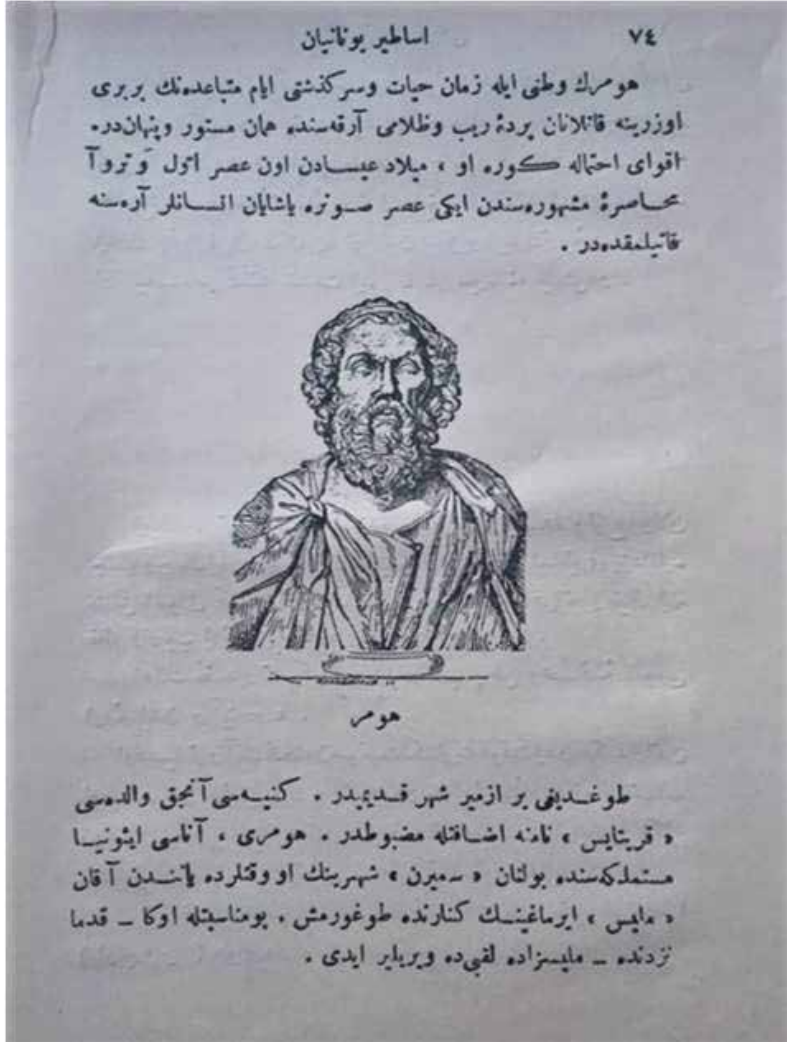 ٧٤ اساطیر یونانیان
هومرك وطنی ایله زمان حیات وسرکذشتی ایام متباعده‌نك بربری
اوزرینه قاتلانان پردهٔ ریب وظلامی آرقه‌سنده همان مستور وپنهان‌در.
اقوای احتماله کوره او ، میلاد عیسادن اون عصر اول و تروآ
محاصرهٔ مشهوره‌سندن ایکی عصر صوتره یاشایان انسانلر آره‌سنه
قاتیلمقده‌در .
هومر
طوغدیغی یر ازمیر شهر قدیمیدر . کنیه‌سی آنجق والده‌سی
« قریتایس » نامنه اضافتله مضبوطدر . هومری ، آناسی ایئونیا
مستملکه‌سنده بولنان « سمیرن » شهرینك او وقتلرده یاتندن آقان
« ملیس » ایرماغینك کنارنده طوغورمش . بومناسبتله اوکا ـ قدما
نزدنده ـ ملیسزاده لقبی‌ده ویریلیر ایدی .